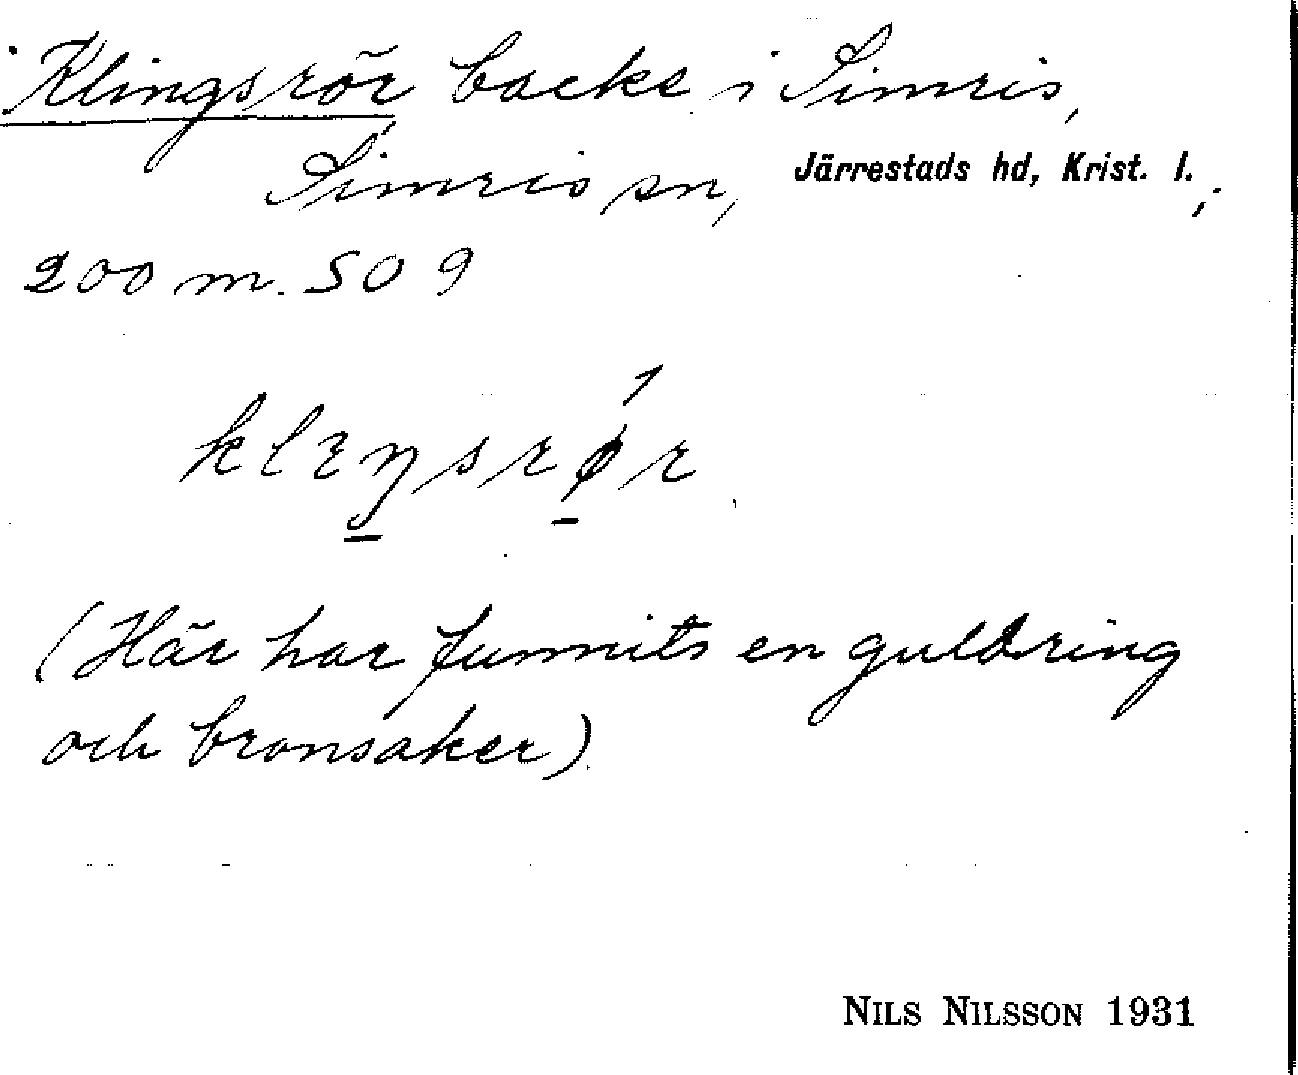 Klingsrör backe i Simris,
Simris sn, Järrestads hd, Krist. l.,
200 m. SO 9
klɛŋsrǿr
(Här har funnits en guldring
och bronsaker)
NILS NILSSON 1931